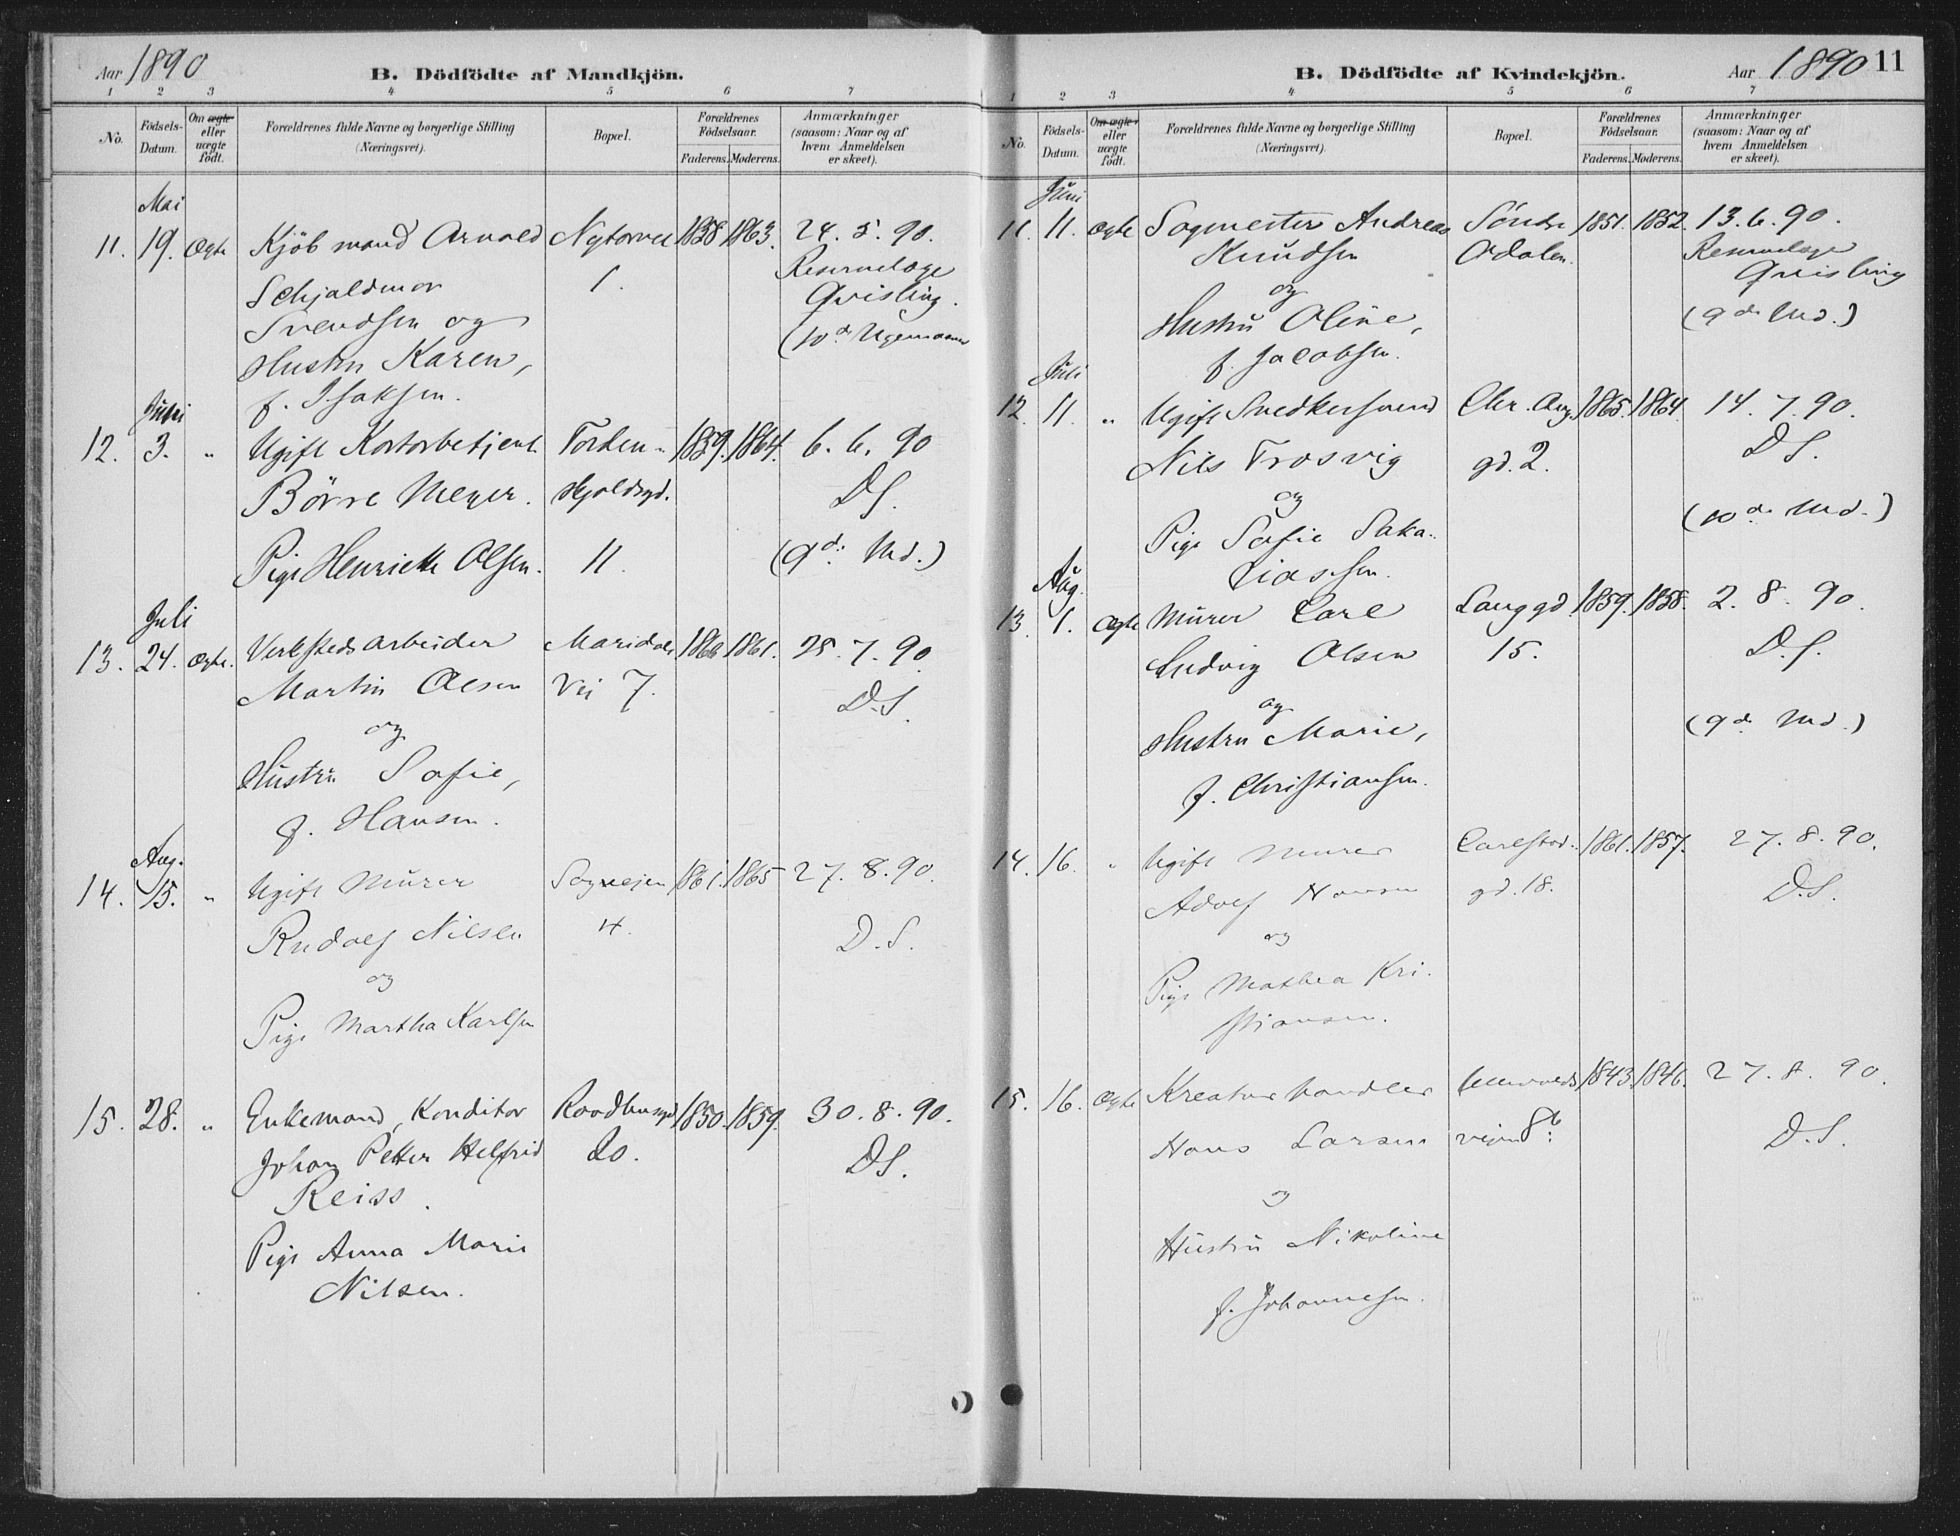 Aar 1890
B. Dödfödte af Mandkjön.
1 2 3 4 5 6 7
No.
Födsels-
Datum.
Om ægte
eller
uægte
födt.
Forældrenes fulde Navne og borgerlige Stilling
(Næringsvei).
Bopæl.
Forældrenes
Födselsaar.
Faderens. Moderens.
Anmærkninger
(saasom: Naar og af
hvem Anmeldelsen
er skeet).
Mai
11. 19. Ægte Kjöbmand Arnold Nytorvet 1838 1863. 24. 5. 90.
Schjoldmor 1. Reservelæge
Svendsen og Qvisling.
Hustru Karen, (10de
f. Isaksen.
Juni
12. 3. " Ugift Kortorbetjent Torden- 1859. 1864. 6. 6. 90
Börre Meyer. skjoldsgd. DS.
Pige Henriette Olsen. 11. (9de Md.)
Juli
13. 24. Ægte. Verkstedsarbeider Maridals 1866 1861. 25. 7. 90
Martin Olsen Vei 7. D.S.
og
Hustru Sofie,
f. Hansen.
Aug.
14. 15. " Ugift Murer Sagveien 1861. 1865 27. 8. 90.
Rudolf Nilsen 4. D.S.
og
Pige Martha Karlsen
15. 28. " Enkemand, Konditor Raadhusgd 1850. 1859. 30. 8. 90.
Johan Petter Helfrid 20. DS.
Reiss.
Pige Anna Marie
Nilsen.
B. Dödfödte af Kvindekjön.
Aar 1890 11
1 2 3 4 5 6 7
No.
Födsels-
Datum.
Om ægte
eller
uægte
födt.
Forældrenes fulde Navne og borgerlige Stilling
(Næringsvei).
Bopæl.
Forældrenes
Födselsaar.
Faderens. Moderens.
Anmærkninger
(saasom: Naar og af
hvem Anmeldelsen
er skeet).
Juni
11. 11. Ægte Sagmester Andreas Söndre 1851. 1852. 13. 6. 90.
Knudsen Odalen. Reservelæge
og Qvisling
Hustru Oline, (9de Md.)
f. Jacobsen.
Juli
12. 11. " Ugift Snedkersvend Chr. Aug. 1865. 1864. 14. 7. 90.
Nils Trosvig gd. 2. DS.
og
Pige Sofie Saka- (10de Md.)
riassen.
Aug.
13. 1. Ægte Murer Carl Langgd. 1859. 1858. 2. 8. 90.
Ludvig Olsen 15. D.S.
og
Hustru Marie, (9de Md.)
f. Christiansen.
14. 16. " Ugift Murer Carlstad- 1861. 1857. 27. 8. 90.
Adolf Hansen gd. 18. D.S.
og
Pige Mathea Kri-
stiansen.
15. 16. Ægte Kreaturhandler Ullevolds 1843. 1846. 27. 8. 90.
Hans Larsen veien 8b. D.S.
og
Hustru Nikoline
f. Johannesen.